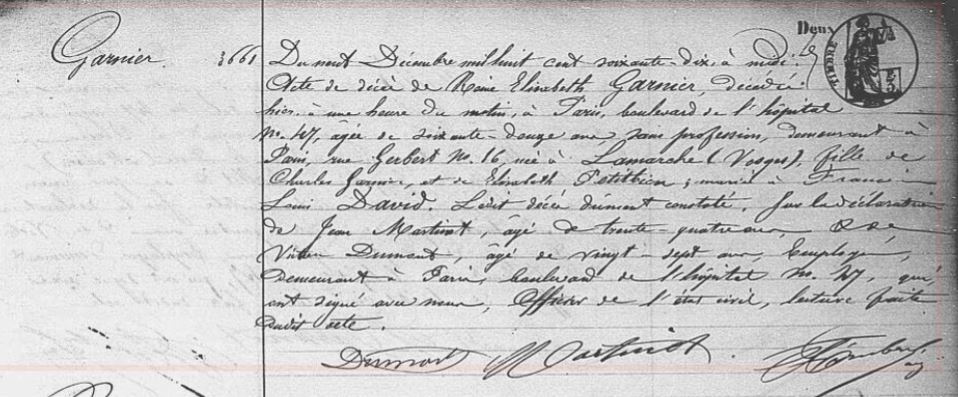 Deux
TIMBRE
Garnier 3661 Du neuf Décembre mil huit cent soixante-dix à midi.
Acte de décès de Reine Elisabeth Garnier, décédée
hier à une heure du matin, à Paris, boulevard de l'hôpital
No. 47, agée de soixante-douze ans, sans profession, demeurant à
Paris, rue Gerbert No. 16, née à Lamarche (Vosges), fille de
Charles Garnier, et de Elisabeth Petitbien; mariée à Francois
Louis David. Ledit décès dument constaté. Sur la déclaration
de Jean Martinot, âgé de trente-quatre ans, & de
Dumont, âgé de vingt-sept ans, Employés,
demeurant à Paris, boulevard de l'hôpital No. 47, qui
ont signé avec nous, Officier de l'état civil, lecture faite
dudit acte.
Dumont Martinot